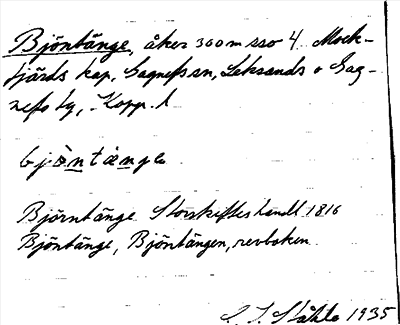 Björntänge, åker 300 m sso 4 Mock-
fjärds kap, Gagnefs sn, Leksands o Gag-
nefs tg, Kopp. l
bjö̀ntäŋe
Björntänge Storskifteshandl 1816
Björntänge, Björntängen, revboken
C. I. Ståhle 1935